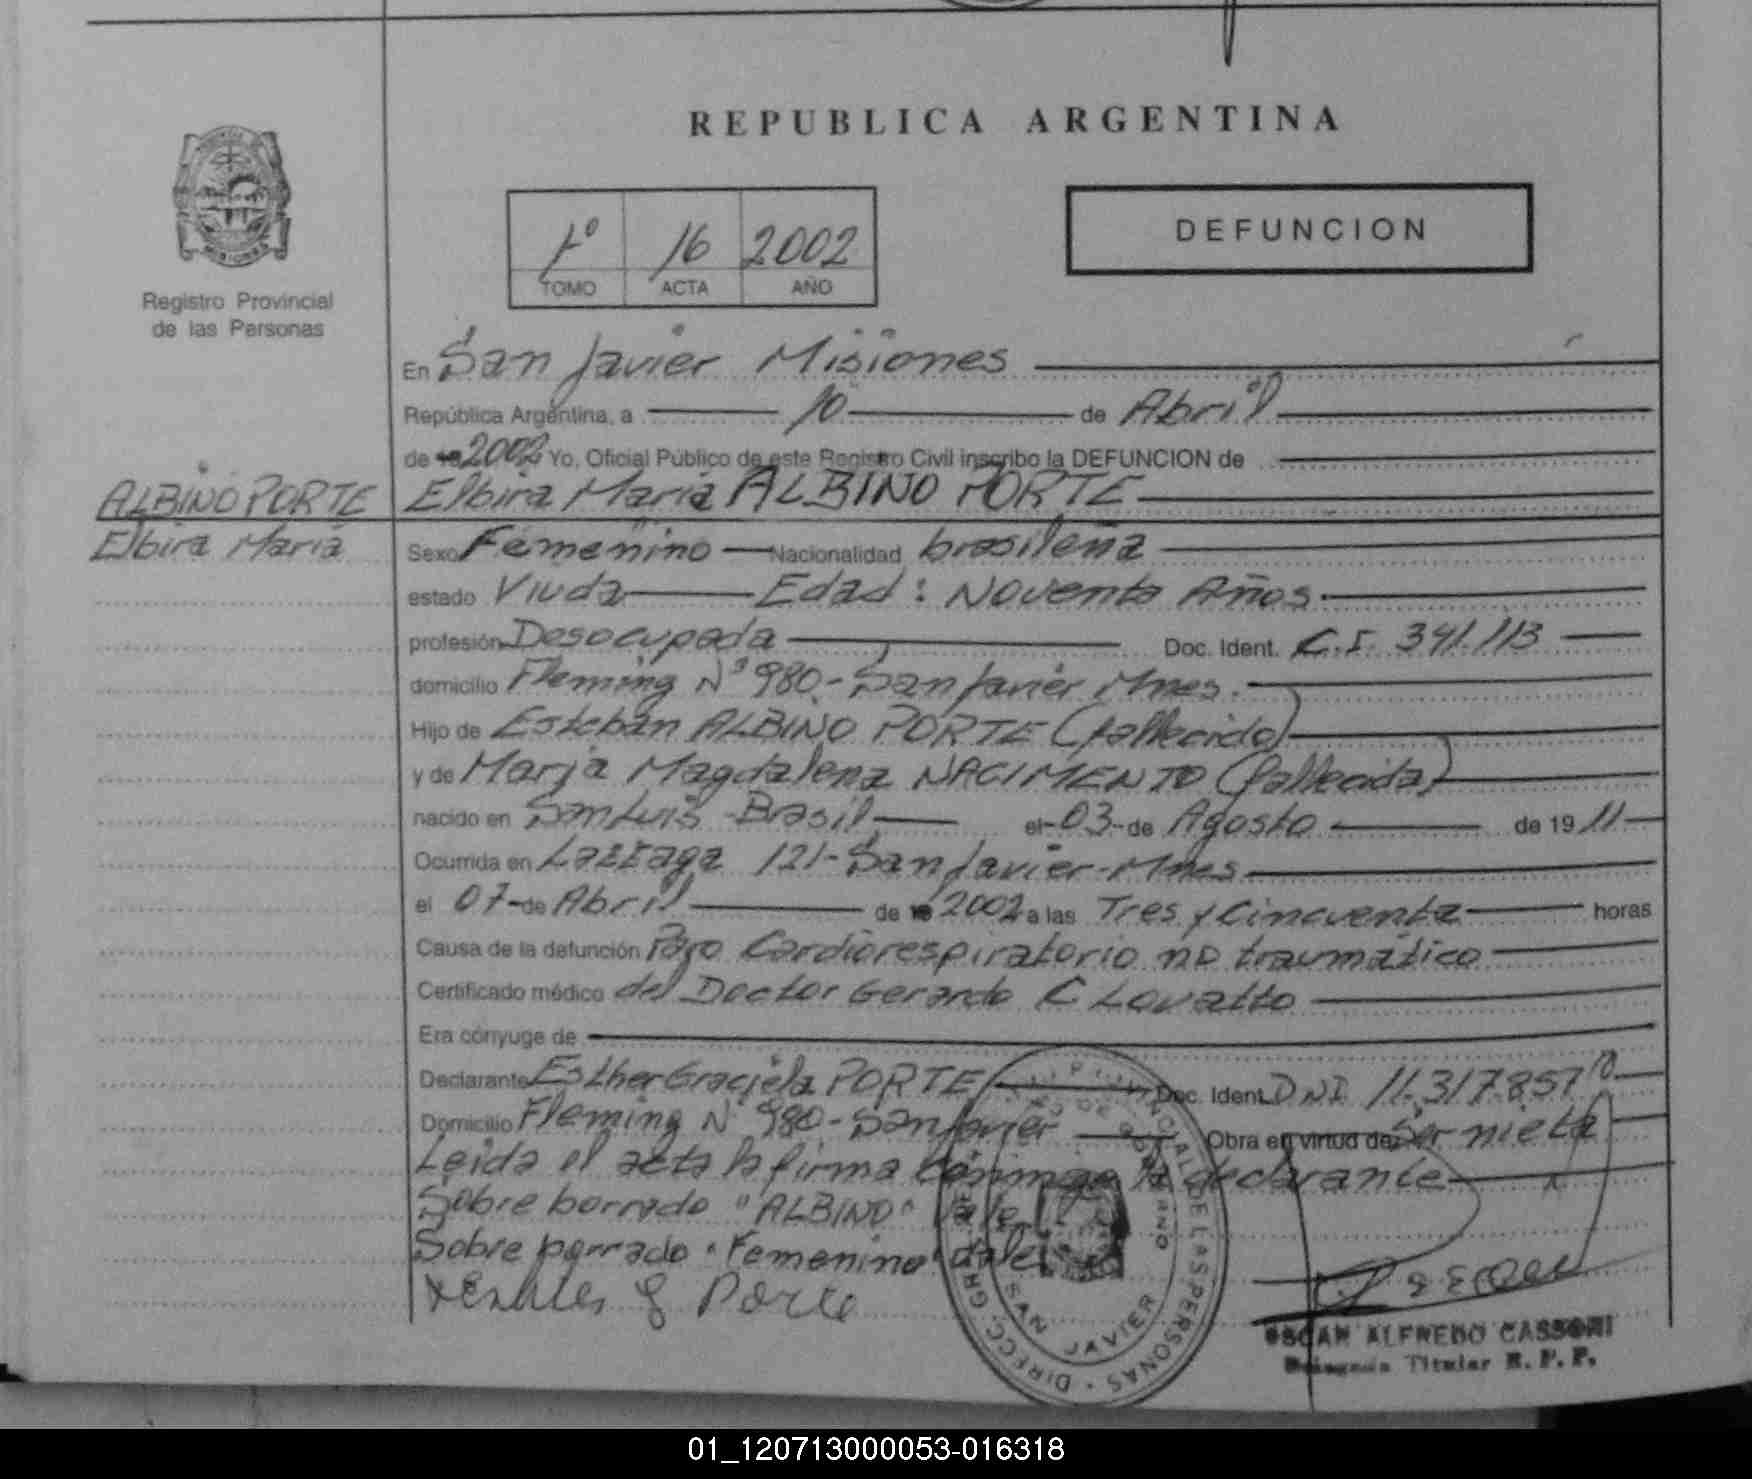 REPUBLICA ARGENTINA
DEFUNCION
1º 16 2002
TOMO ACTA AÑO
Registro Provincial
de las Personas
En San Javier Misiones
República Argentina, a 10 de Abril
de 2002 Yo, Oficial Público de este Registro Civil inscribo la DEFUNCION de
ALBINO PORTE
Elbira Maria
Elbira Maria ALBINO PORTE
Sexo Femenino Nacionalidad brasileña
estado Viuda Edad: Noventa Años
profesión Desocupada Doc. Ident. C.I. 341.113
domicilio Fleming Nº 980 - San Javier Mnes.
Hijo de Esteban ALBINO PORTE (fallecido)
y de Maria Magdalena NACIMENTO (fallecida)
nacido en San Luis - Brasil el 03 de Agosto de 1911
Ocurrida en 121 - San Javier - Mnes
el 07 de Abril de 2002 a las Tres y Cincuenta horas
Causa de la defunción Paro Cardiorespiratorio no traumático
Certificado médico del Doctor Gerardo C Lovatto
Era cónyuge de
Declarante Esther Graciela PORTE Doc. Ident. DNI 11.317.857
Domicilio Fleming Nº 980 - San Javier Obra en virtud de Ser nieta
Leida el acta la firma conmigo la declarante
Sobre borrado "ALBINO" Vale
Sobre borrado "Femenino" Vale
Esther G Porte
SAN JAVIER
OSCAR ALFREDO CASSONI
Titular R. P. P.
01_120713000053-016318